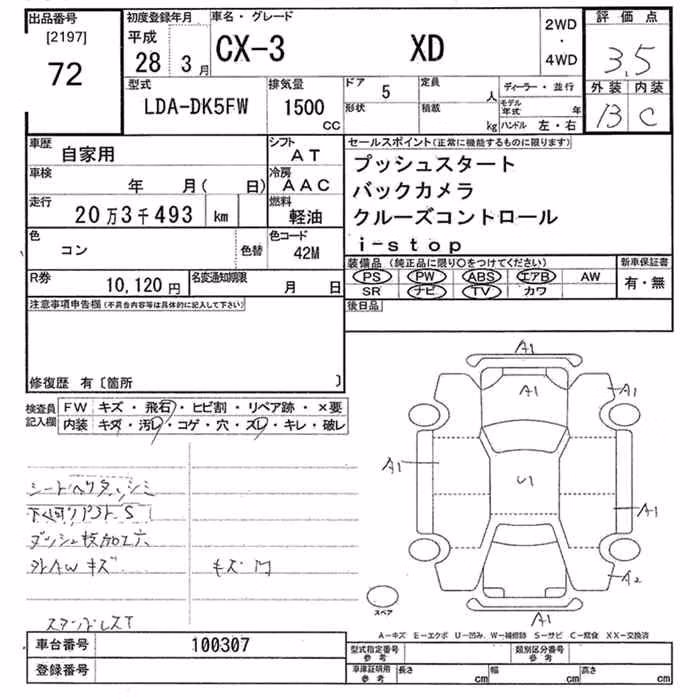 出品番号
[2197]
72
初度登録年月
平成
28 3 月
車名・グレード
CX-3 XD
2WD
・
4WD
評価点
3.5
外装 内装
B C
型式
LDA-DK5FW
排気量
1500
CC
ドア 5
形状
定員 人
積載 kg
ディーラー・並行
モデル年式 年
ハンドル 左・右
車歴
自家用
シフト
AT
車検
年 月( 日)
冷房
AAC
走行
20万3千493 km
燃料
軽油
色
コン
色替
色コード
42M
R券
10,120円
名変通知期限
月 日
セールスポイント(正常に機能するものに限ります)
プッシュスタート
バックカメラ
クルーズコントロール
i-stop
装備品(純正品に限り○をつけてください)
PS PW ABS エアB AW
SR ナビ TV カワ
新車保証書
有・無
後日品
注意事項申告欄(不具合内容等は具体的に記入して下さい)
修復歴 有〔箇所 〕
検査員
記入欄
FW キズ・飛石・ヒビ割・リペア跡・×要
内装 キズ・汚レ・コゲ・穴・スレ・キレ・破レ
シートヘリ
ダッシュ板加工穴
外AWキズ
A1
A1
A1
A1
U1
A1
A2
A1
スペア
A-キズ E-エクボ U-凹み W-補修跡 S-サビ C-腐食 XX-交換済
車台番号 100307
登録番号
型式指定番号
参考
類別区分番号
参考
車庫証明用
参考
長さ cm
幅 cm
高さ cm